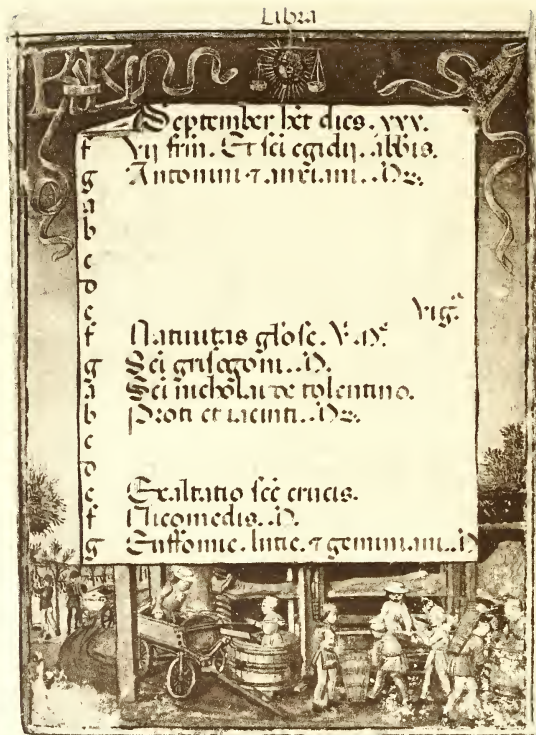 Libra
September h̄et dies. xxx.
f Vij frm. Et sci egidij. abbis.
g Antonini ⁊
a
b
c
d
e vig.ᵃ
f Natiuitas glose. V. M.ᵉ
g Sci grisogoni. M.
a Sci nicholai de tolentino.
b Proti et iacinti. Mr.
c
d
e Exaltatio sc̄e crucis.
f Nicomedis. M.
g Euffomie. lucie. ⁊ geminiani. M